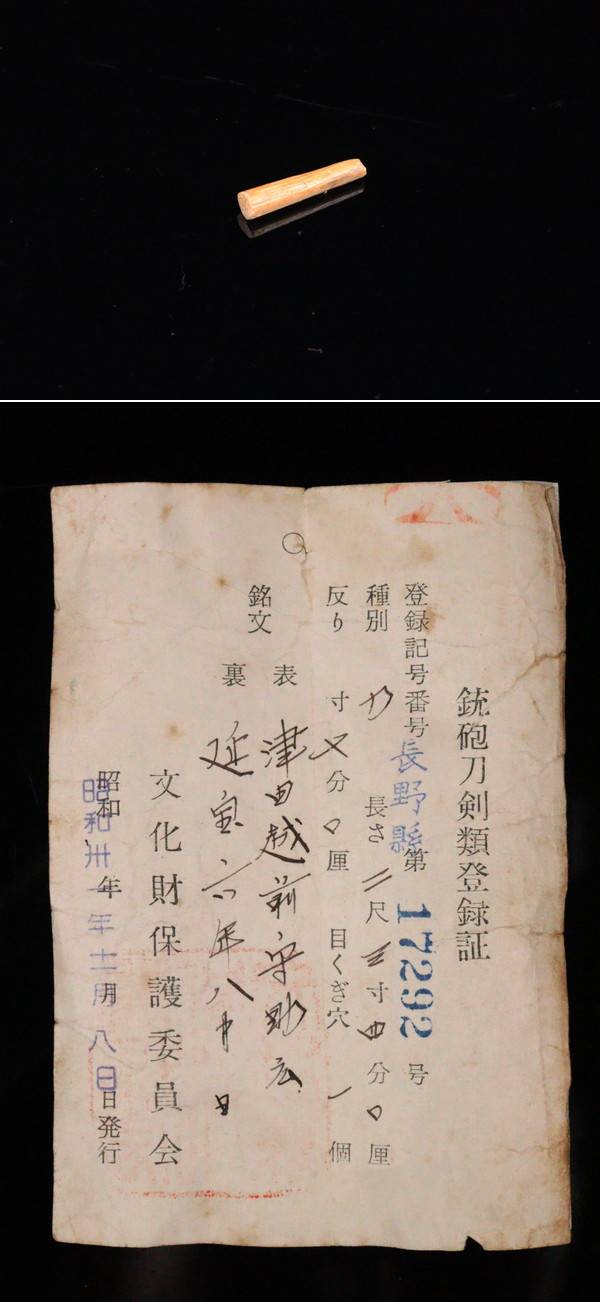 銃砲刀剣類登録証
登録記号番号 長野縣 第 17292 号
種別 刀 長さ 二尺 三寸 四分 〇厘
反り 寸 又分 〇厘 目くぎ穴 一個
銘文 表 津田越前守助広
裏 延宝六年八月日
文化財保護委員会
昭和卅一年十二月八日発行